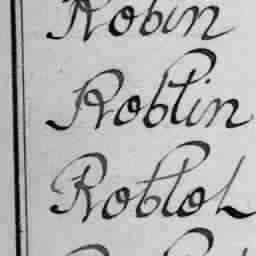 Robin
Roblin
Roblot